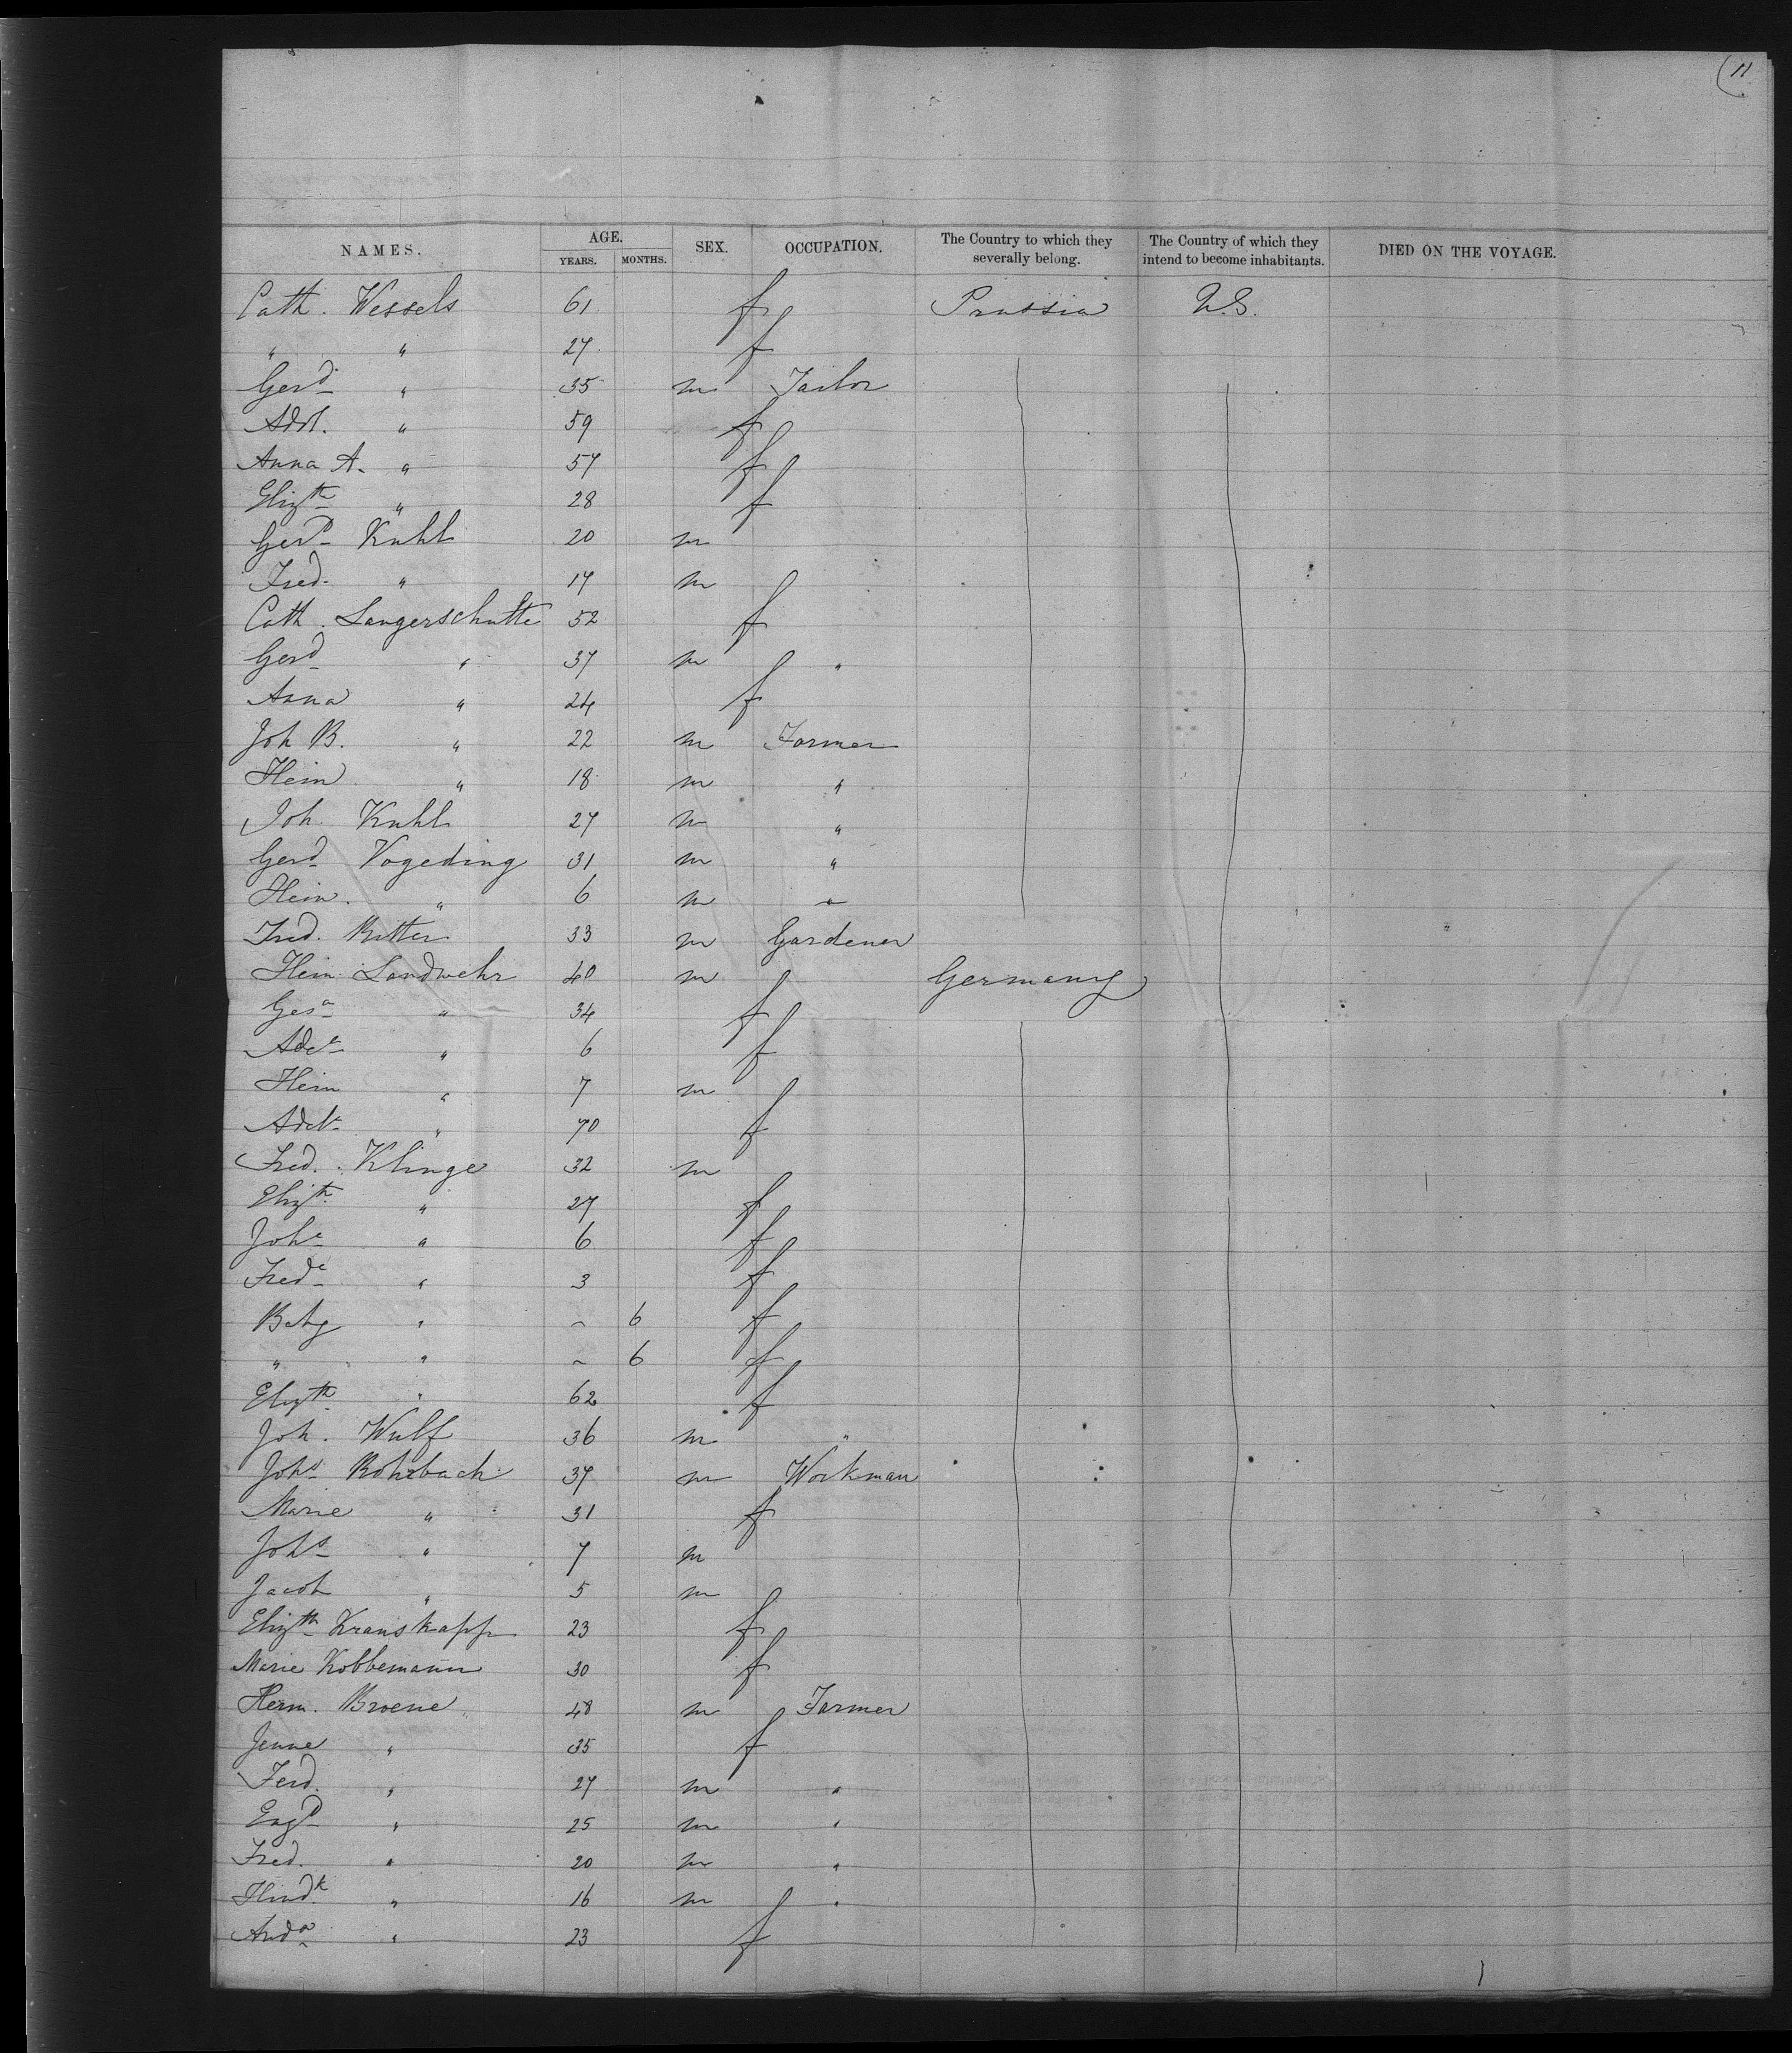 (11
NAMES. AGE. YEARS. MONTHS. SEX. OCCUPATION. The Country to which they severally belong. The Country of which they intend to become inhabitants. DIED ON THE VOYAGE.
Cath. Wessels 61 f Prussia U.S.
" " 27 f
Gerd " 35 m Tailor
Adel. " 59 f
Anna A. " 57 f
Elizth " 28 f
Gerd Kuhl 20 m
Fred. " 17 m
Cath. Langerschutte 52 f
Gerd " 37 m "
Anna " 24 f
Joh B. " 22 m Farmer
Hein " 18 m "
Joh. Kuhl 27 m "
Gerd Vogeding 31 m "
Hein. " 6 m "
Fred. Ritter 33 m Gardener
Hein. Landwehr 40 m Germany
Gesa " 34 f
Ade " 6 f
Hein " 7 m
Ade " 70 f
Fred. Klinge 32 m
Elizth " 27 f
Johe " 6 f
Frede " 3 f
Betg " ~ 6 f
" " ~ 6 f
Elizth " 62 f
Joh. Wulf 36 m "
Johs Rohrbach 37 m Workman
Marie " 31 f
Johs " 7 m
Jacob " 5 m
Elizth Kranskapp 23 f
Marie Kobbemann 30 f
Herm. Broene 48 m Farmer
Jenne " 35 f
Ferd. " 27 m "
Engd " 25 m "
Fred. " 20 m "
Hindk " 16 m "
" 23 f